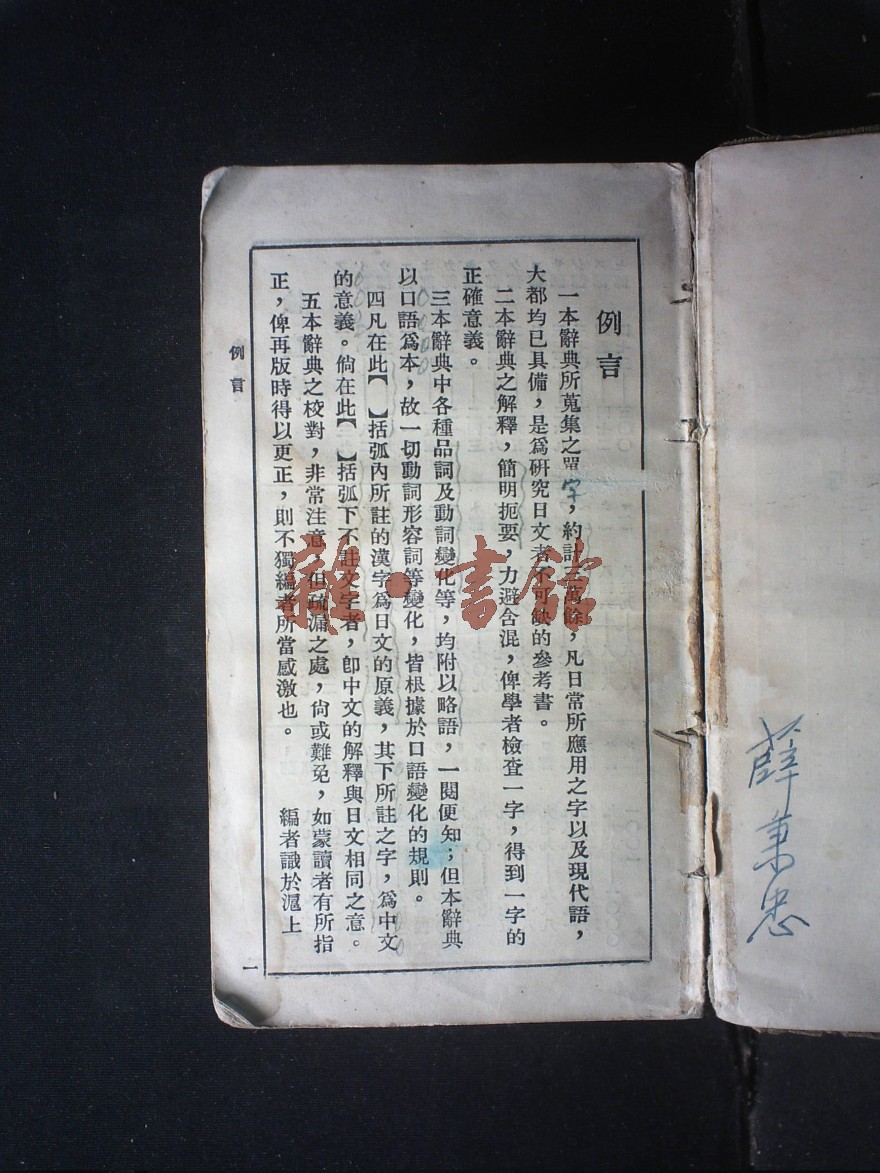 例言
一本辭典所蒐集之單字，約計三萬餘，凡日常所應用之字以及現代語，
大都均已具備，是爲硏究日文者不可缺的參考書。
二本辭典之解釋，簡明扼要，力避含混，俾學者檢查一字，得到一字的
正確意義。
三本辭典中各種品詞及動詞變化等，均附以略語，一閱便知；但本辭典
以口語爲本，故一切動詞形容詞等變化，皆根據於口語變化的規則。
四凡在此【　】括弧內所註的漢字爲日文的原義，其下所註之字，爲中文
的意義。倘在此【　】括弧下不註文字者，卽中文的解釋與日文相同之意。
五本辭典之校對，非常注意，但疏漏之處，尙或難免，如蒙讀者有所指
正，俾再版時得以更正，則不獨編者所當感激也。
編者識於滬上
例言
一
薛秉忠
雜·書館